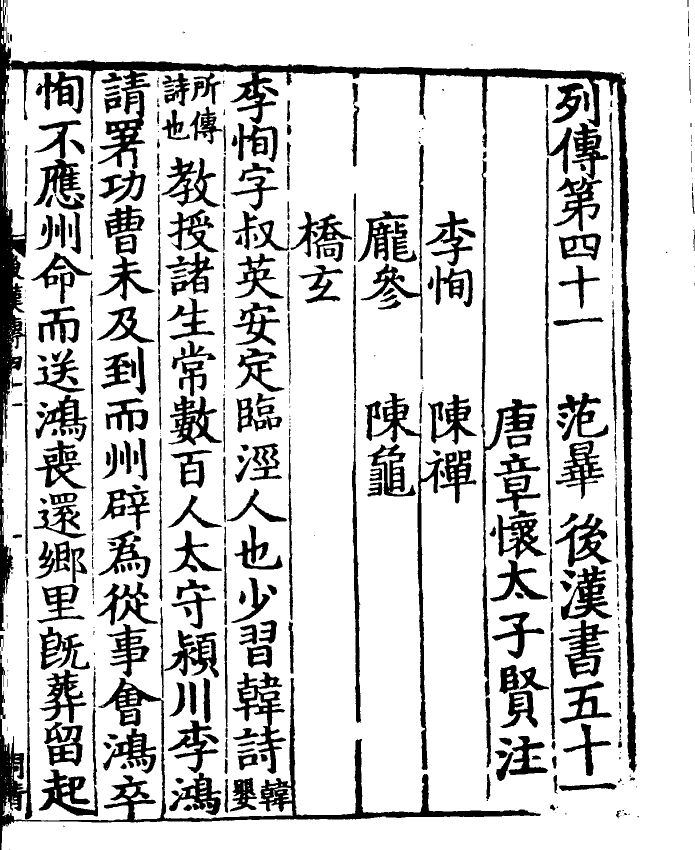 列傳第四十一　范曅　後漢書五十一
唐章懷太子賢注
李恂　陳禪
龐參　陳龜
橋玄
李恂字叔英安定臨涇人也少習韓詩韓嬰
所傳詩也教授諸生常數百人太守潁川李鴻
請署功曹未及到而州辟爲從事會鴻卒
恂不應州命而送鴻喪還鄉里旣葬留起